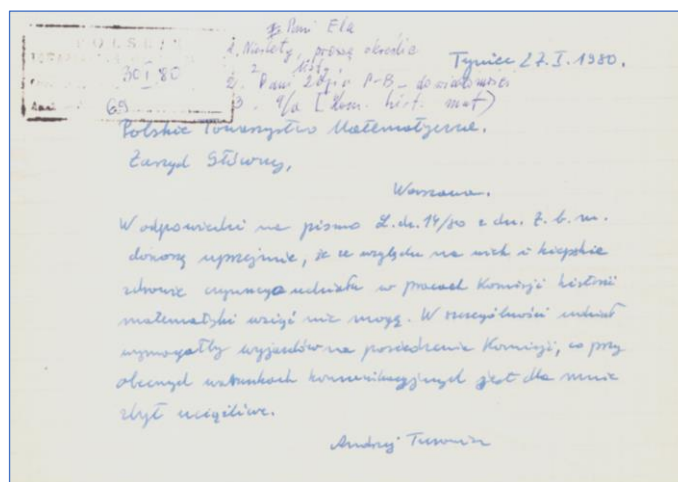 Pani Ela
1. Niestety, proszę skreślić
z listy
2. Pani Zofia P-B – do wiadomości
3. a/a [Kom. hist. mat)
POLSKIE
30 I 80
69
Tyniec 27.I.1980.
Polskie Towarzystwo Matematyczne.
Zarząd Główny,
Warszawa.
W odpowiedzi na pismo L.dz. 14/80 z dn. 7. b. m.
donoszę uprzejmie, że ze względu na wiek i kiepskie
zdrowie czynnego udziału w pracach Komisji historii
matematyki wziąć nie mogę. W szczególności udział
wymagałby wyjazdów na posiedzenia Komisji, co przy
obecnych warunkach komunikacyjnych jest dla mnie
zbyt uciążliwe.
Andrzej Turowicz